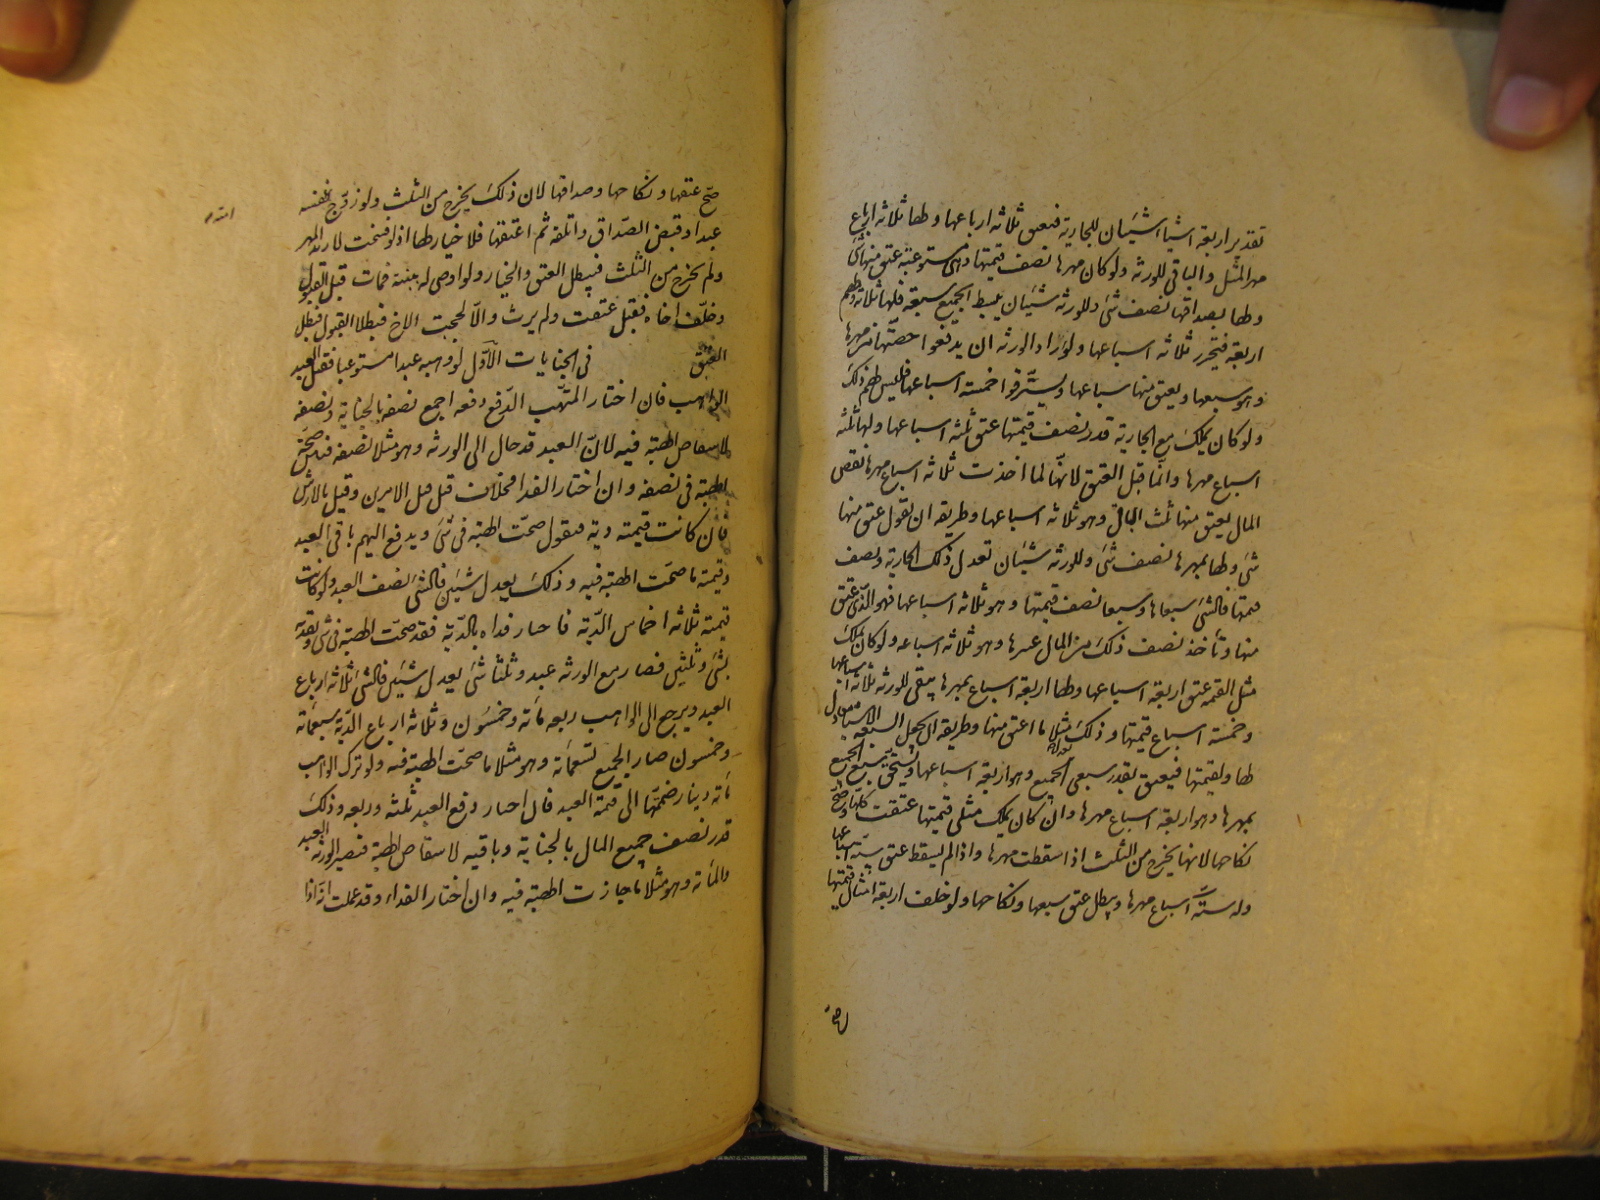 تقدير اربعة اشيا شيئان للجارية فتعتق ثلاثة ارباعها ولها ثلاثة ارباع
مهر المثل والباقي للورثة ولو كان مهرها نصف قيمتها وهي مستوعبة عتق منها شئ
ولها بصداقها نصف شئ وللورثة شيئان يبسط الجميع سبعة فلها ثلاثة ولهم
اربعة فيتحرر ثلاثة اسباعها ولو اراد الورثة ان يدفعوا حصتها من مهرها
وهو سبعها ويعتق منها سباعها ويسترقوا خمسة اسباعها فليس لهم ذلك
ولو كان يملك مع الجارية قدر نصف قيمتها عتق ثلثة اسباعها ولها ثلثة
اسباع مهرها وانما قبل العتق لانها لما اخذت ثلاثة اسباع مهرها نقص
المال يعتق منها ثلث الباقي وهو ثلاثة اسباعها وطريقه ان تقول عتق منها
شئ ولها بمهرها نصف شئ وللورثة شيئان تعدل ذلك الجارية ونصف
قيمتها فالشئ سبعاها وسبعا نصف قيمتها وهو ثلاثة اسباعها فهو الذي عتق
منها وتأخذ نصف ذلك من المال بمهرها وهو ثلاثة اسباعه ولو كان يملك
مثل القيمة عتق اربعة اسباعها ولها اربعة اسباع بمهرها يبقى للورثة ثلاثة اسباعها
وخمسة اسباع قيمتها وذلك مثلا ما اعتق منها وطريقه ان يجعل السبعة الاشيا معادلة
لها ولقيمتها فيعتق بقدر سبعي الجميع وهو اربعة اسباعها وتستحق سبع الجميع
بمهرها وهو اربعة اسباع مهرها وان كان يملك مثلي قيمتها عتقت كلها وصح
نكاحها لانها يخرج من الثلث اذا اسقطت مهرها واذا لم يسقط عتق ستة اسباعها
وله ستة اسباع مهرها ويبطل عتق سبعها ونكاحها ولو خلف اربعة امثال قيمتها
صح
صح عتقها ونكاحها وصداقها لان ذلك يخرج من الثلث ولو زوج
عبدا وقبض الصداق واتلفه ثم اعتقها فلا خيار لها اذ لو فسخت لارتد المهر
ولم يخرج من الثلث فيبطل العتق والخيار ولو اوصى له ببنته فمات قبل القبول
وخلف اخاه فقبل عتقت ولم يرث والا لحجبت الاخ فبطل القبول فبطل
العتق في الجنايات الاول لو وهبه عبدا مستوعبا فقتل العبد
الواهب فان اختار المتهب الدفع دفعه اجمع نصفه بالجناية ونصفه
لانتقاص الهبة فيه لان العبد قد حال الى الورثة وهو مثلا نصفه فتصح
الهبة في نصفه وان اختار الفدا فخلاف قيل اقل الامرين وقيل بالارش
فان كانت قيمته دية فنقول صحت الهبة في شئ ويدفع اليهم باقي العبد
وقيمة ما صحت الهبة فيه وذلك يعدل شيئين فالشئ نصف العبد ولو كانت
قيمته ثلاثة اخماس الدية فاختار فداه بالدية فقد صحت الهبة في شئ وفداه
بشئ وثلثين فصار مع الورثة عبد وثلثا شئ يعدل شيئين فالشئ ثلاثة ارباع
العبد ويرجع الى الواهب ربعه مأة وخمسون وثلاثة ارباع الدية سبعمأة
وخمسون صار الجميع تسعمأة وهو مثلا ما صحت الهبة فيه ولو ترك الواهب
مأة دينار ضمتها الى قيمة العبد فان اختار دفع العبد ثلثه وربعه وذلك
قدر نصف جميع المال بالجناية وباقيه لانتقاص الهبة فتصير للورثة العبد
والمأة وهو مثلا ما جازت الهبة فيه وان اختار الفداء وقد علمت انه اذا